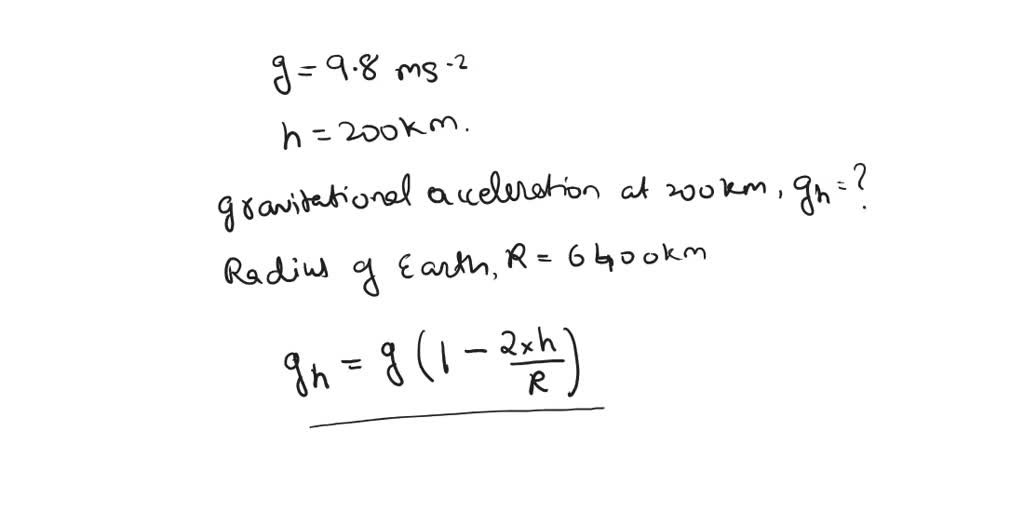 g = 9.8 ms-2
h = 200km.
gravitational acceleration at 200km, gh = ?
Radius of Earth, R = 6400km
gh = g (1 - 2×h/R)